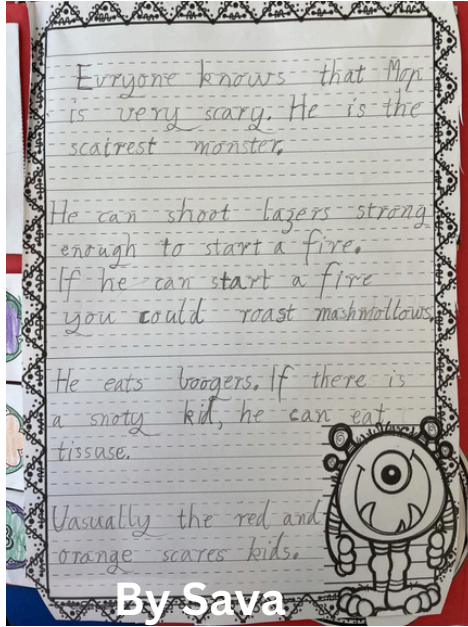 Evryone knows that Mop
is very scary. He is the
scairest monster.
He can shoot lazers strong
enough to start a fire.
If he can start a fire
you could roast mashmollows.
He eats boogers. If there is
a snoty kid, he can eat
tissuse.
Uasually the red and
orange scares kids.
By Sava